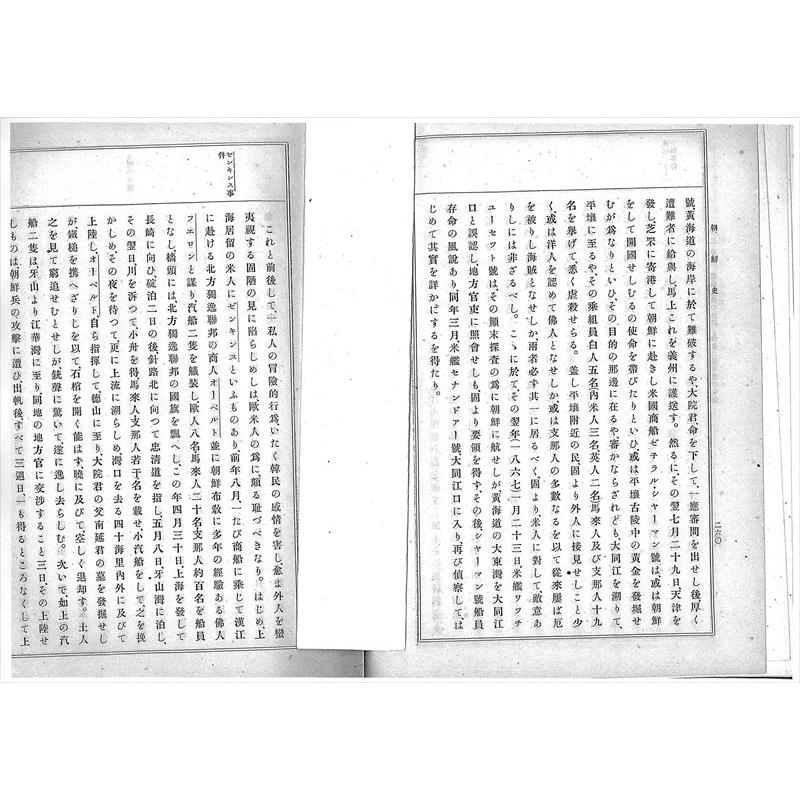 朝鮮史
二六〇
號黃海道の海岸に於て難破するや、大院君、命を下して、一應審問を出せし後厚く
遭難者に給與し、馬上これを義州に護送す。然るに、その翌七月二十九日天津を
發し、芝罘に寄港して朝鮮に赴きし米國商船ゼネラル、シャーマン號は、或は朝鮮
をして開國せしむるの使命を帶びたりといひ、或は平壤古陵中の黃金を發掘せ
むが爲なりといひ、その目的の那邊に在るや、審かならざれども、大同江を溯りて、
平壤に至るや、その乘組員白人五名(內米人三名英人二名)馬來人及び支那人十九
名を擧げて、悉く虐殺せらる。蓋し平壤附近の民固より外人に接見せしこと少
く、或は洋人を認めて佛人となせしか、或は支那人の多數なるを以て從來屢ば厄
を被りし海賊となせしか、兩者必ず其一に居るべく、固より米人に對して敵意あ
りしには非ざるべし。こゝに於て、その翌年一八六七一月二十三日米艦ワツチ
ユーセツト號は、その顚末探査の爲に朝鮮に航せしが、黃海道の大東灣を大同江
口と誤認し、地方官吏に照會せしも、固より要領を得す、その後、シャーマン號船員
存命の風說あり、同年三月米艦セナンドアー號大同江口に入り、再び偵察して、は
じめて其實を詳かにするを得たり。
ゼンキンス事
件
これと前後して、一私人の冒險的行爲、いたく韓民の感情を害し、愈ま外人を蠻
夷視する固陋の見に陷らしめしは、歐米人の爲に頗る恥づべきなり。はじめ、上
海居留の米人にゼンキンスといふものあり、前年八月、一たび商船に乘じて漢江
に赴ける北方獨逸聯邦の商人オーベルト並に朝鮮布敎に多年の經驗ある佛人
フエロンと謀り、汽船二隻を艤裝し、歐人八名馬來人二十名支那人約百名を船員
となし、檣頭には北方獨逸聯邦の國旗を飄へし、この年四月三十日上海を發して
長崎に向ひ、碇泊二日の後針路北に向つて忠淸道を指し、五月八日牙山灣に泊し、
その翌日川を泝つて、小舟を得、馬來人支那人若干名を載せ、小汽船をして之を挽
かしめ、その夜を待つて、更に上流に溯らしめ、灣口を去る四十海里內外に及びて
上陸し、オーベルド自ら指揮して德山に至り、大院君の父南延君の墓を發掘せし
が、鐵槌を携へざりしを以て、石棺を開く能はす、曉に及びて空しく退却す。土人
之を見て窮追せむとせしが、銃聲に驚いて遂に逸し去らしむ。次いで、如上の汽
船二隻は、牙山より江華灣に至り、同地の地方官に交涉すること三日、その上陸せ
しものは、朝鮮兵の攻擊に遭ひ、出帆後すべて三週日、一も得るところなくして、上